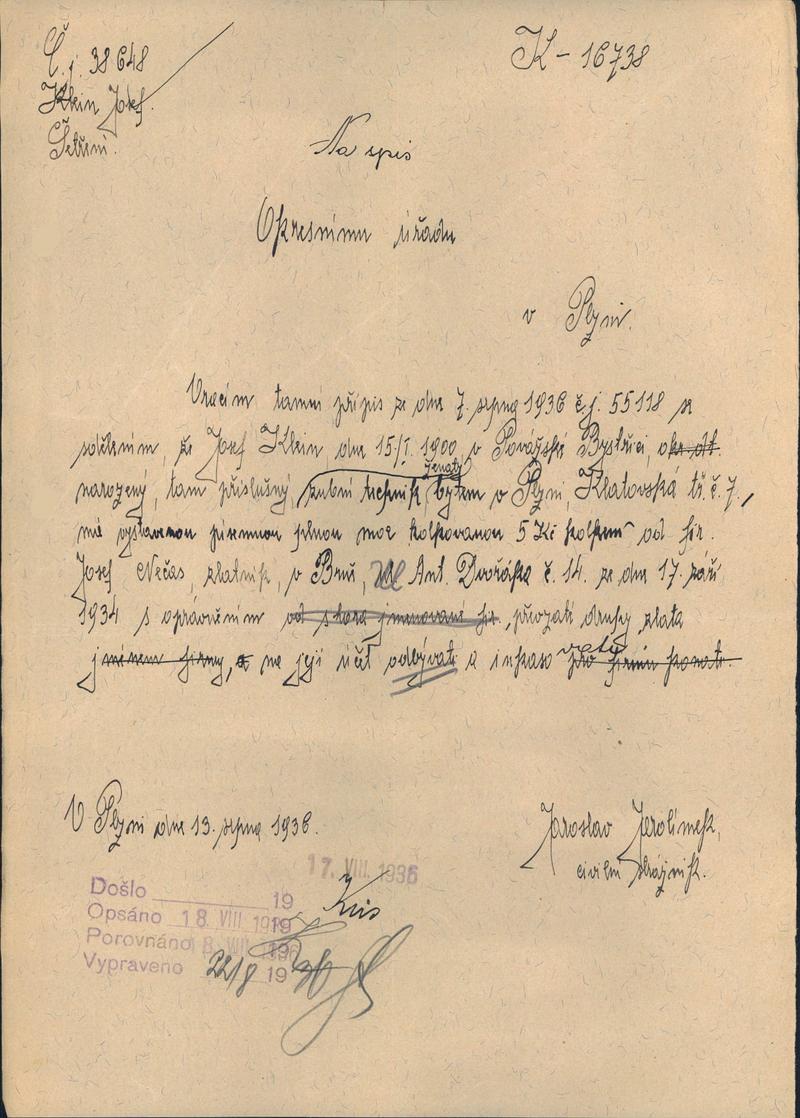 Č.j. 38648
K - 16738
Klein Josef.
Šetření.
Na spis
Okresnímu úřadu
v Plzni.
Vracím tamní přípis ze dne 7. srpna 1936 č.j. 55118 se
sdělením, že Josef Klein, dne 15/I. 1900, v Povážské Bystřici, okr. dt.
narozený, tam příslušný, zubní technik, ženatý bytem v Plzni, Klatovská tř. č. 7,
má vystavenou písemnou plnou moc kolkovanou 5 Kč kolkem od fir.
Josef Nečas, zlatník, v Brně, Ul Ant. Dvořáka č. 14. ze dne 17. září
1934 s oprávněním od shora jmenované fir. převzati druhy zlata
jménem firmy, a na její účet odbývati a inkaso pro firmu konati.
V Plzni dne 13. srpna 1936.
Jaroslav Jerolímek,
civilní strážník.
17. VIII. 1936
Došlo 19
Opsáno 18. VIII 1936 19
Porovnáno 18. VIII. 1936 19
Vypraveno 22/8 19 36